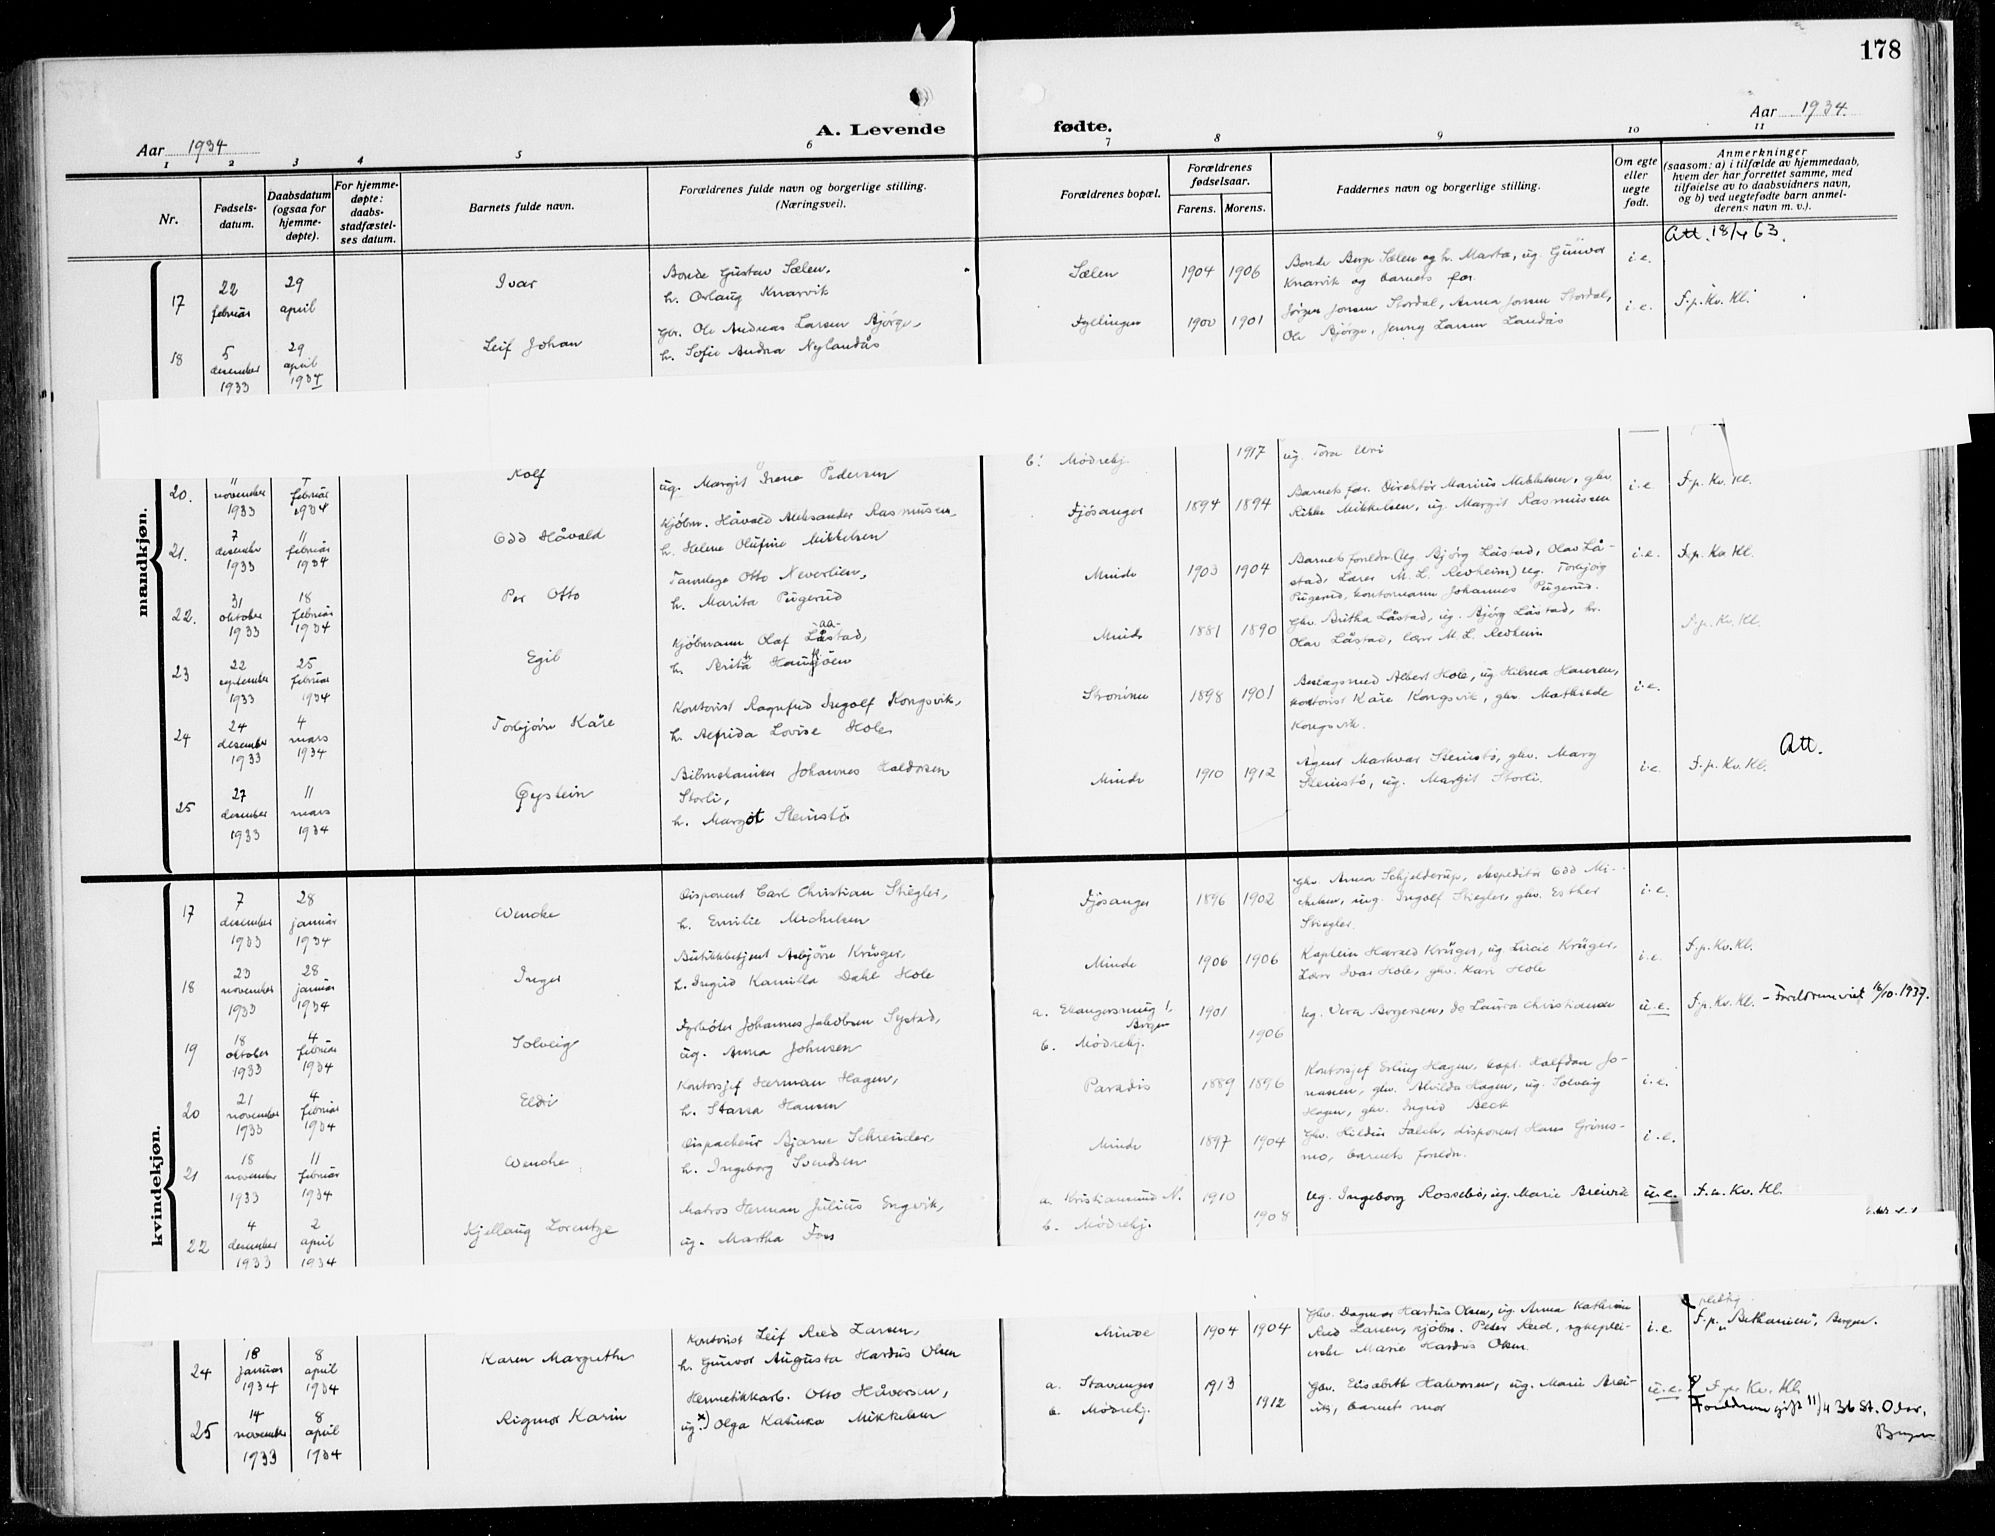 178
Aar 1934
A. Levende fødte.
Aar 1934.
1 2 3 4 5 6 7 8 9 10 11
Nr.
Fødsels-
datum.
Daabsdatum
(ogsaa for
hjemme-
døpte).
For hjemme-
døpte:
daabs-
stadfæstel-
ses datum.
Barnets fulde navn.
Forældrenes fulde navn og borgerlige stilling.
(Næringsvei).
Forældrenes bopæl.
Forældrenes
fødselsaar.
Farens. Morens.
Faddernes navn og borgerlige stilling.
Om egte
eller
uegte
født.
Anmerkninger
(saasom: a) i tilfælde av hjemmedaab,
hvem der har forrettet samme, med
tilføielse av to daabsvidners navn,
og b) ved uegtefødte barn anmel-
derens navn m. v.).
mandkjøn.
Att. 18/4 63.
17
22
februar
29
april
Ivar
Bonde Gustav Sælen,
h. Orlaug Knarvik
Sælen
1904 1906
Bonde Berge Sælen og h. Marta, ug. Gunvor
Knarvik og barnets far.
i.e.
18
5
desember
1933
29
april
1934
Leif Johan
Gbr. Ole Andreas Larsen Bjørge,
h. Sofie Andrea Nylandås
Fyllingen
1900 1901
Jørgen Jonsen Stordal, Anna Jonsen Stordal,
Ole Bjørge, Jenny Larsen Landås
i.e.
F.p. Kv. Kl.
b. Mødrehj.
1917
ug. Tora Uri
20.
11
november
1933
februar
1934
Rolf
ug. Margit Irene Pedersen
21.
7
desember
1933
11
februar
1934
Odd Håvald
Kjøbm. Håvald Aleksander Rasmussen,
h. Helene Olufine Mikkelsen
Fjøsanger
1894 1894
Barnets far. Direktør Marius Mikkelsen, ghv.
Rikke Mikkelsen, ug. Margit Rasmussen
i.e.
F.p. Kv. Kl.
22.
31
oktober
1933
18
februar
1934
Per Otto
Tannlege Otto Neverlien,
h. Marita Pugerud
Minde
1903 1904
Barnets foreldre (Ug. Bjørg Låstad, Olav Lå-
stad, Lærer M. L. Revheim) ug. Torbjørg
Pugerud, kontormann Johannes Pugerud.
i.e.
F.p. Kv. Kl.
23
22
september
1933
25
februar
1934
Egil
Kjøbmann Olaf Låstad,
-aa-
h. Brita Haugsjøen
Minde
1881 1890
Ghv. Britha Låstad, ug. Bjørg Låstad, hr.
Olav Låstad, lærer M. L. Revheim
F.p. Kv. Kl.
24
24
desember
1933
4
mars
1934
Torbjørn Kåre
Kontorist Ragnfred Ingolf Kongsvik,
h. Alfrida Lovise Hole
Strømme
1898 1901
Beslagsmed Albert Hole, ug. Hilma Hansen,
kontorist Kåre Kongsvik, ghv. Mathilde
Kongsvik.
i.e.
25
27
desember
1933
11
mars
1934
Øystein
Bilmekaniker Johannes Haldorsen
Storli,
h. Margot Steinstø
Minde
1910 1912
Agent Markvar Steinstø, ghv. Mary
Steinstø, ug. Margit Storli.
i.e.
F.p. Kv. Kl.
Att.
kvindekjøn.
17
7
desember
1933
28
januar
1934
Wenche
Disponent Carl Christian Stiegler,
h. Emilie Michelsen
Fjøsanger
1896 1902
Ghv. Anna Schjelderup, ekspeditør Odd Mi-
chelsen, ug. Ingolf Stiegler, ghv. Esther
Stiegler.
i.e.
18
23
november
1933
28
januar
1934
Inger
Butikkbetjent Asbjørn Krüger,
h. Ingrid Kamilla Dahl Hole
Minde
1906 1906
Kaptein Harald Krüger, ug. Lucie Krüger,
Lærer Ivar Hole, ghv. Kari Hole
i.e.
F.p. Kv. Kl.
19
18
oktober
1933
4
februar
1934
Solveig
Fyrbøter Johannes Jakobsen Systad,
ug. Anna Johnsen
a.
Bergen
b. Mødrehj.
1901
1906
Ug. Vera Borgersen, do Laura Christianse
u.e.
F.p. Kv. Kl. – Foreldrene viet 16/10. 1937.
20
21
november
1933
4
februar
1934
Eldri
Kontorsjef Herman Hagen,
h. Starra Hansen
Paradis
1889 1896
Kontorsjef Erling Hagen, kapt. Halfdan Jo-
nassen, ghv. Alvilda Hagen, ug. Solveig
Hagen, ghv. Ingrid Beck
i.e.
21
18
november
1933
11
februar
1934
Wenche
Dispacheur Bjarne Schreuder,
h. Ingeborg Svendsen
Minde
1897 1904
Ghv. Hildur Falch, disponent Hans Grims-
mo, barnets foreldre.
i.e.
22
4
desember
1933
2
april
1934
Kjellaug Lorentze
Matros Herman Julius Engvik,
ug. Martha Foss
a. Kristiansund N.
b. Mødrehj.
1910
1908
Ug. Ingeborg Rossebø, ug. Marie Breivik
u.e.
F.p. Kv. Kl.
24
18
januar
1934
8
april
1934
Karen Margrethe
Kontorist Leif Reed Larsen,
h. Gunvor Augusta Hardus Olsen
Minde
1904 1904
Ghv. Dagmar Hardus Olsen, ug. Anna Kathrine
Reed Larsen, kjøbm. Peter Reed, sykeplei-
erske Marie Hardus Olsen.
i.e.
F.p. „Bethanien", Bergen.
25
14
november
1933
8
april
1934
Rigmor Karin
Hermetikkarb. Otto Håversen,
ug. x) Olga Katinka Mikkelsen
a. Stavanger
b. Mødrehj.
1913
1912
Ghv. Elisabeth Halvorsen, ug. Marie Brei-
vik, barnets mor
u.e.
F.p. Kv. Kl.
Foreldrene gift 11/4 36 St. Olav,
Bergen